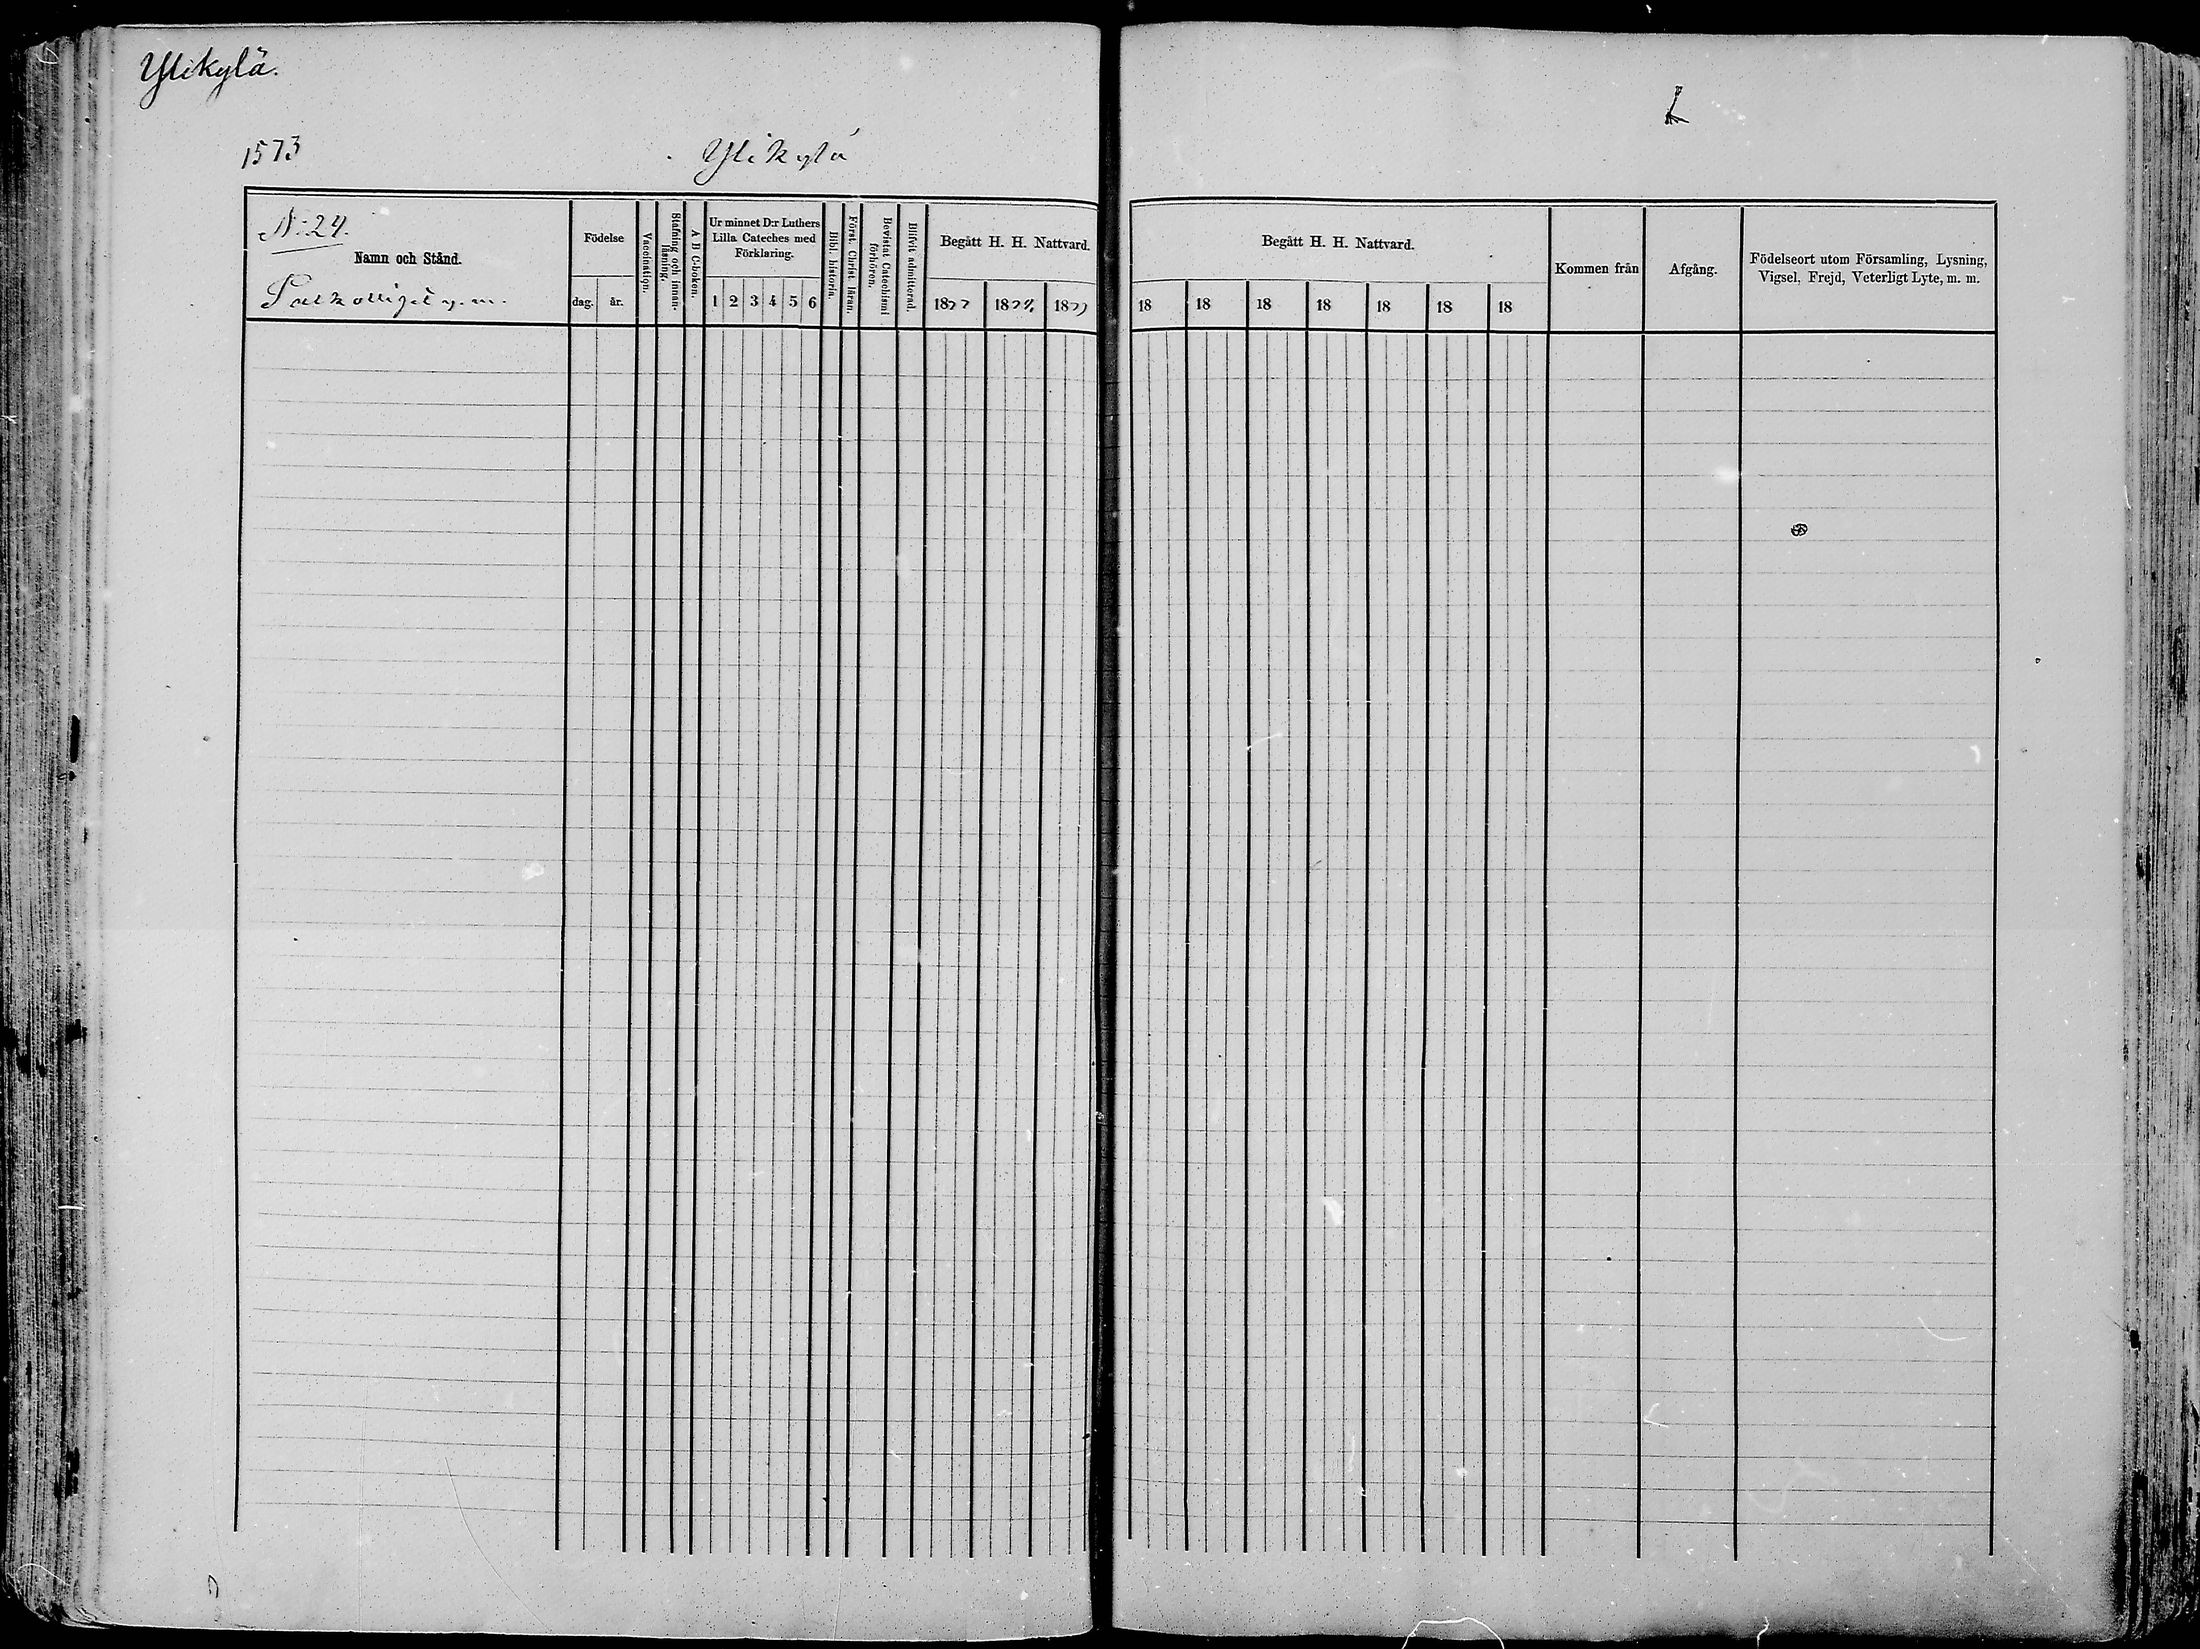 Ylikylä.
1573
Ylikylä
N:24.
Namn och Stånd.
Födelse
dag.
år.
Vaccination.
Stafning och innanläsning.
A B C-boken.
Ur minnet D:r Luthers
Lilla Cateches med
Förklaring.
1 2 3 4 5 6
Bibl. historia.
Först. Christ läran.
Bevistat Catechismi
förhören.
Blifvit admitterad.
Begått H. H. Nattvard.
1877 1878 1879
Begått H. H. Nattvard.
18 18 18 18 18 18 18
Kommen från
Afgång.
Födelseort utom Församling, Lysning,
Vigsel, Frejd, Veterligt Lyte, m. m.